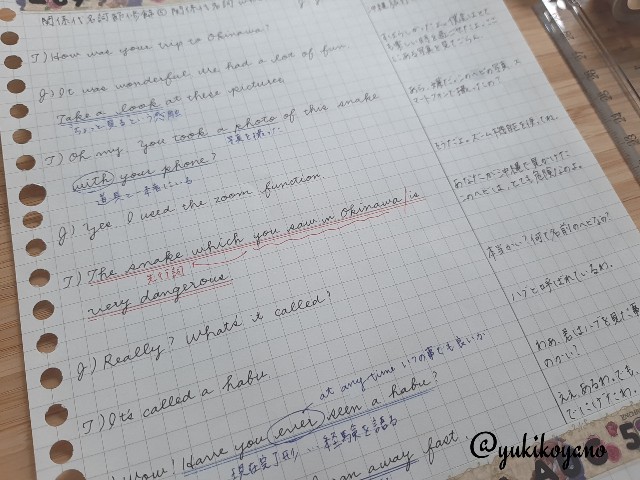 関係代名詞節修飾① 関係代名詞
T) How was your trip to Okinawa?
J) It was wonderful. We had a lot of fun.
Take a look at these pictures.
ちょっと見るという感じ
T) Oh my. You took a photo of this snake
写真を撮った
with your phone?
道具と一緒にいる
J) Yes. I used the zoom function.
T) The snake which you saw in Okinawa / is
先行詞
very dangerous.
J) Really? What's it called?
T) It's called a habu.
at any time いつの事でも良いが
Wow! Have you ever seen a habu?
現在完了形…経験を語る
away fast
そうだよ。ズーム機能を使ってね。
あなたが沖縄で見かけた
このヘビは、とても危険なのよ。
本当かい?何て名前のヘビなの?
ハブと呼ばれているわ。
わあ、君はハブを見た事
のかい?
ええ、あるわ。でも、
@yukikoyano